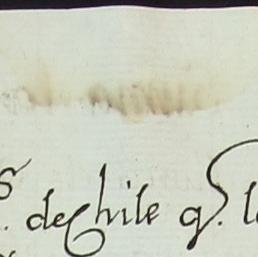 s. de chile q. l